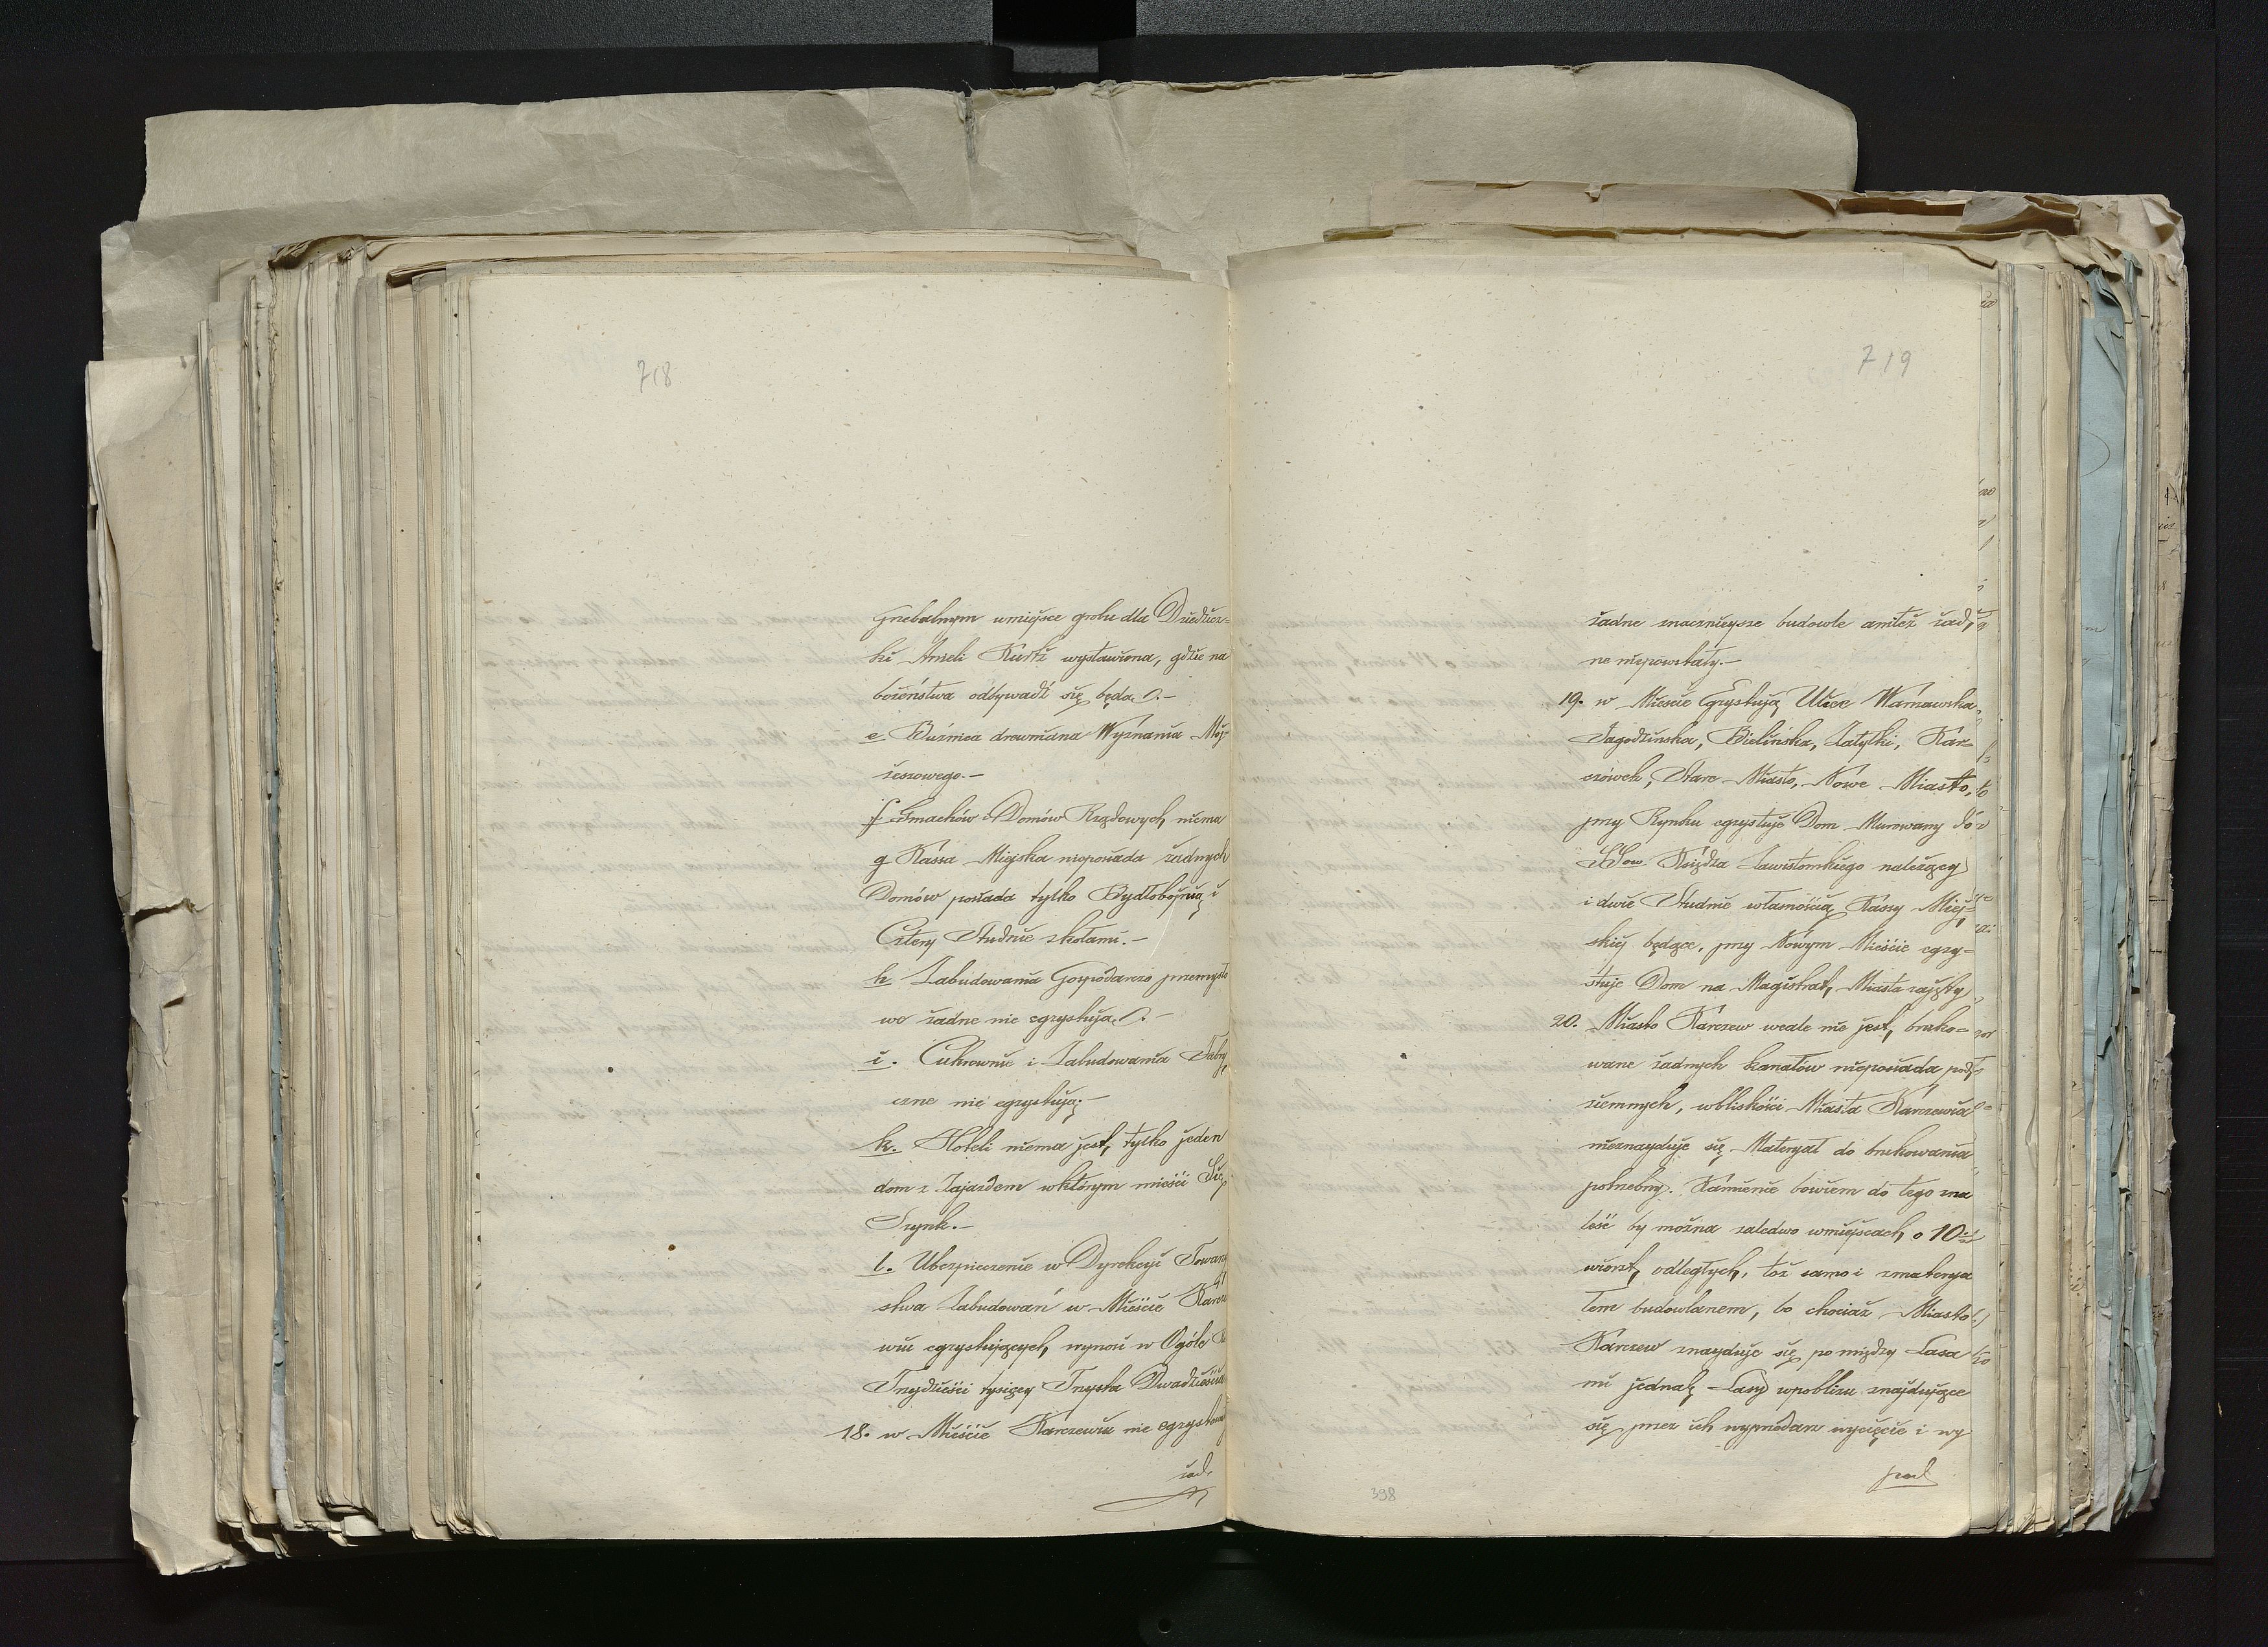 718
Grzebalnym wmiejsce grobu dla Dziedzicz-
ki Anieli Kurtz wystawiona, gdzie na
bożeństwa odbywadź się będą.-
e Bużnica drewniana Wyznania Moj-
żeszowego.-
f Gmachów i Domów Rządowych niema
g Kassa Miejska nieposiada żadnych
Domów posiada tylko Bydłobojnią i
Cztery Studnie zkołami.-
h Zabudowania Gospodarczo przemysło
we żadne nie egzystują.-
i. Cukrownie i Zabudowania Fabry
czne nie egzystują;-
k. Hoteli niema jest, tylko jeden
dom z Zajazdem wktórym mieści Się
Szynk.-
l. Ubezpieczenie w Dyrekcyi Towarz
stwa Zabudowań w Mieście Karcze
wiu egzystujących, wynosi w Ogóle
Trzydzieści tysięcy Trzysta Dwadzieścia
18. w Mieście Karczewiu nie egzystują
żad.
719
żadne znacznieysze budowle anitéż żad,
ne niepowstały.-
19. w Mieście Egzystują Ulice Warszawska
Jagodzinska, Bielinska, Zatylki, Kar-
czówek, Stare Miasto, Nowe Miasto,
przy Rynku egzystuje Dom Murowany do
SSow Księdza Zawistowskiego należący
i dwie Studnie własnością Kassy Miej-
skiej będące, przy Nowym Mieście egzy-
stuje Dom na Magistrat, Miasta zajęty
20. Miasto Karczew wcale nie jest, bruko-
wane żadnych kanałów nieposiada pod-
ziemnych, wbliskości Miasta Karczewia
nieznayduje się Materyał do brukowania
potrzebny. Kamienie bowiem do tego zna
leść by można zaledwo wmiejscach o 10
wiorst, odległych, toż samo i zmaterya
łem budowlanem, bo chociaż Miasto
Karczew znayduje się pomiędzy Lasa
mi jednak Lasy wpobliżu znajdujące
się przez ich wyprzedarz wycięcie i wy
przed
398